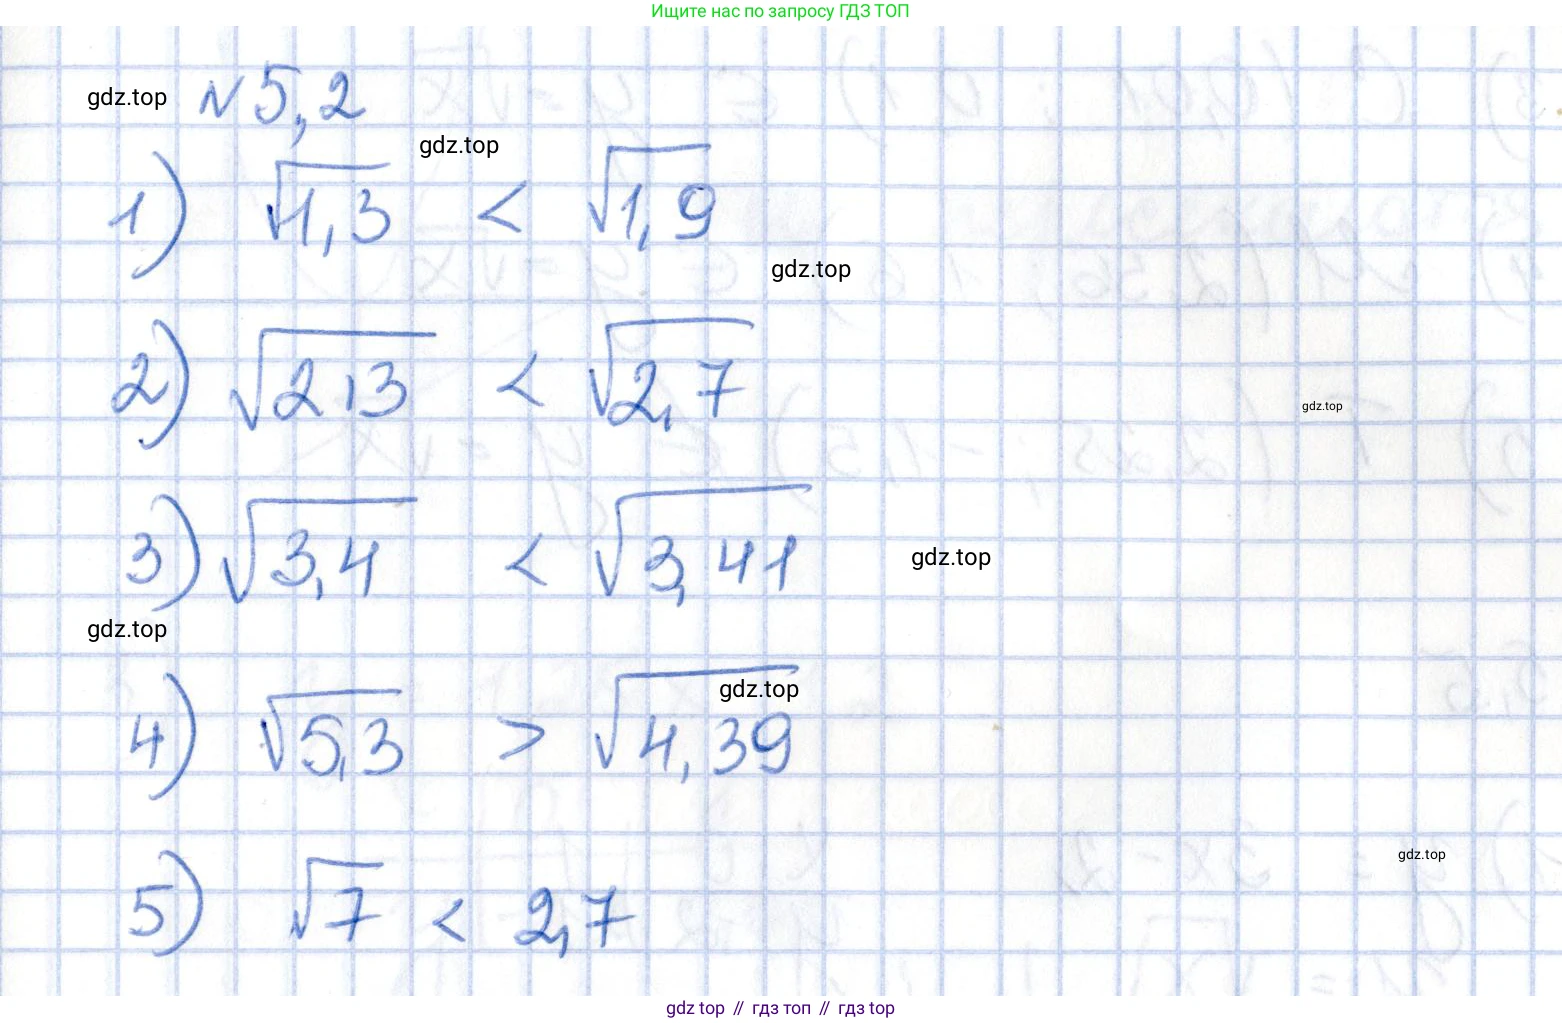 Ищите нас по запросу ГДЗ ТОП
gdz.top №5,2
gdz.top
1) √1,3 < √1,9
gdz.top
2) √2,3 < √2,7
gdz.top
3) √3,4 < √3,41
gdz.top
gdz.top
gdz.top
4) √5,3 > √4,39
gdz.top
5) √7 < 2,7
gdz top // гдз топ // гдз top